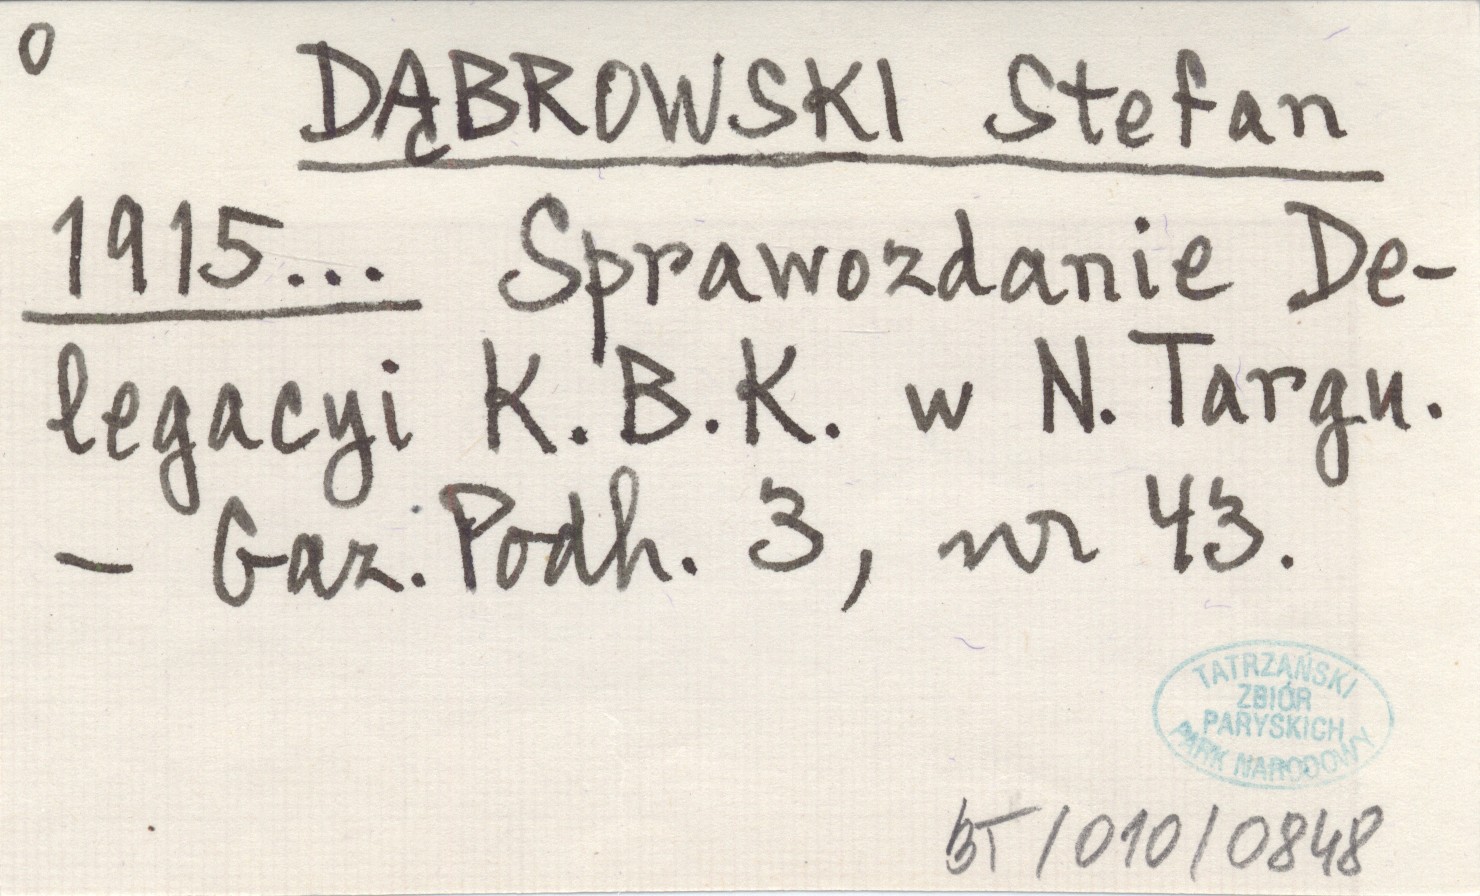 0
DĄBROWSKI Stefan
1915... Sprawozdanie De-
legacyi K.B.K. w N. Targu.
- Gaz. Podh. 3, nr 43.
TATRZAŃSKI
ZBIÓR
PARYSKICH
PARK NARODOWY
BT/010/0848